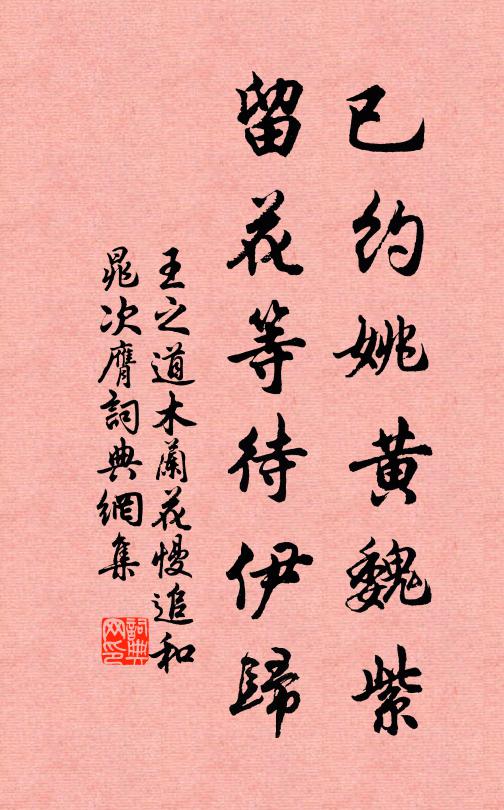 已约姚黄魏紫
留花等待伊歸
王之道木蘭花慢追和
晁次膺詞典網集
詞典网印